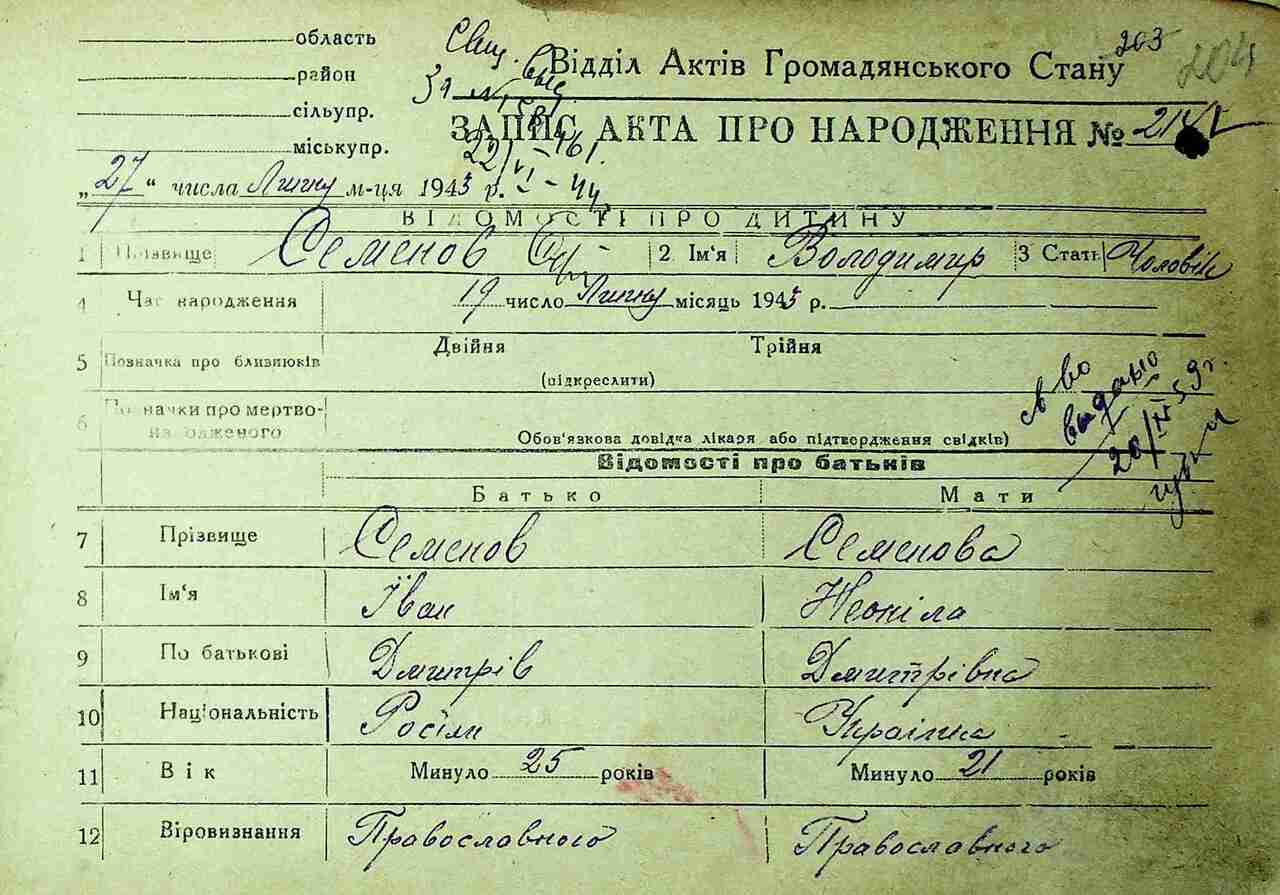 область
район
сільупр.
міськупр.
Відділ Актів Громадянського Стану 203 204
ЗАПИС АКТА ПРО НАРОДЖЕННЯ №
„27“ числа Липня м-ця 1943 р.
ВІДОМОСТІ ПРО ДИТИНУ
1 Прізвище Семенов 2 Ім'я Володимир 3 Стать Чоловіч
4 Час народження 19 число Липня місяць 1943 р.
5 Позначка про близнюків Двійня Трійня
(підкреслити)
6 Позначки про мертво-
народженого
Обов'язкова довідка лікаря або підтвердження свідків)
св во
выдано
20/ 59г.
Відомості про батьків
Батько Мати
7 Прізвище Семенов Семенова
8 Ім'я Іван Неоніла
9 По батькові Дмитрів Дмитрівна
10 Національність Росіян Українка
11 Вік Минуло 25 років Минуло 21 років
12 Віровизнання Православного Православного